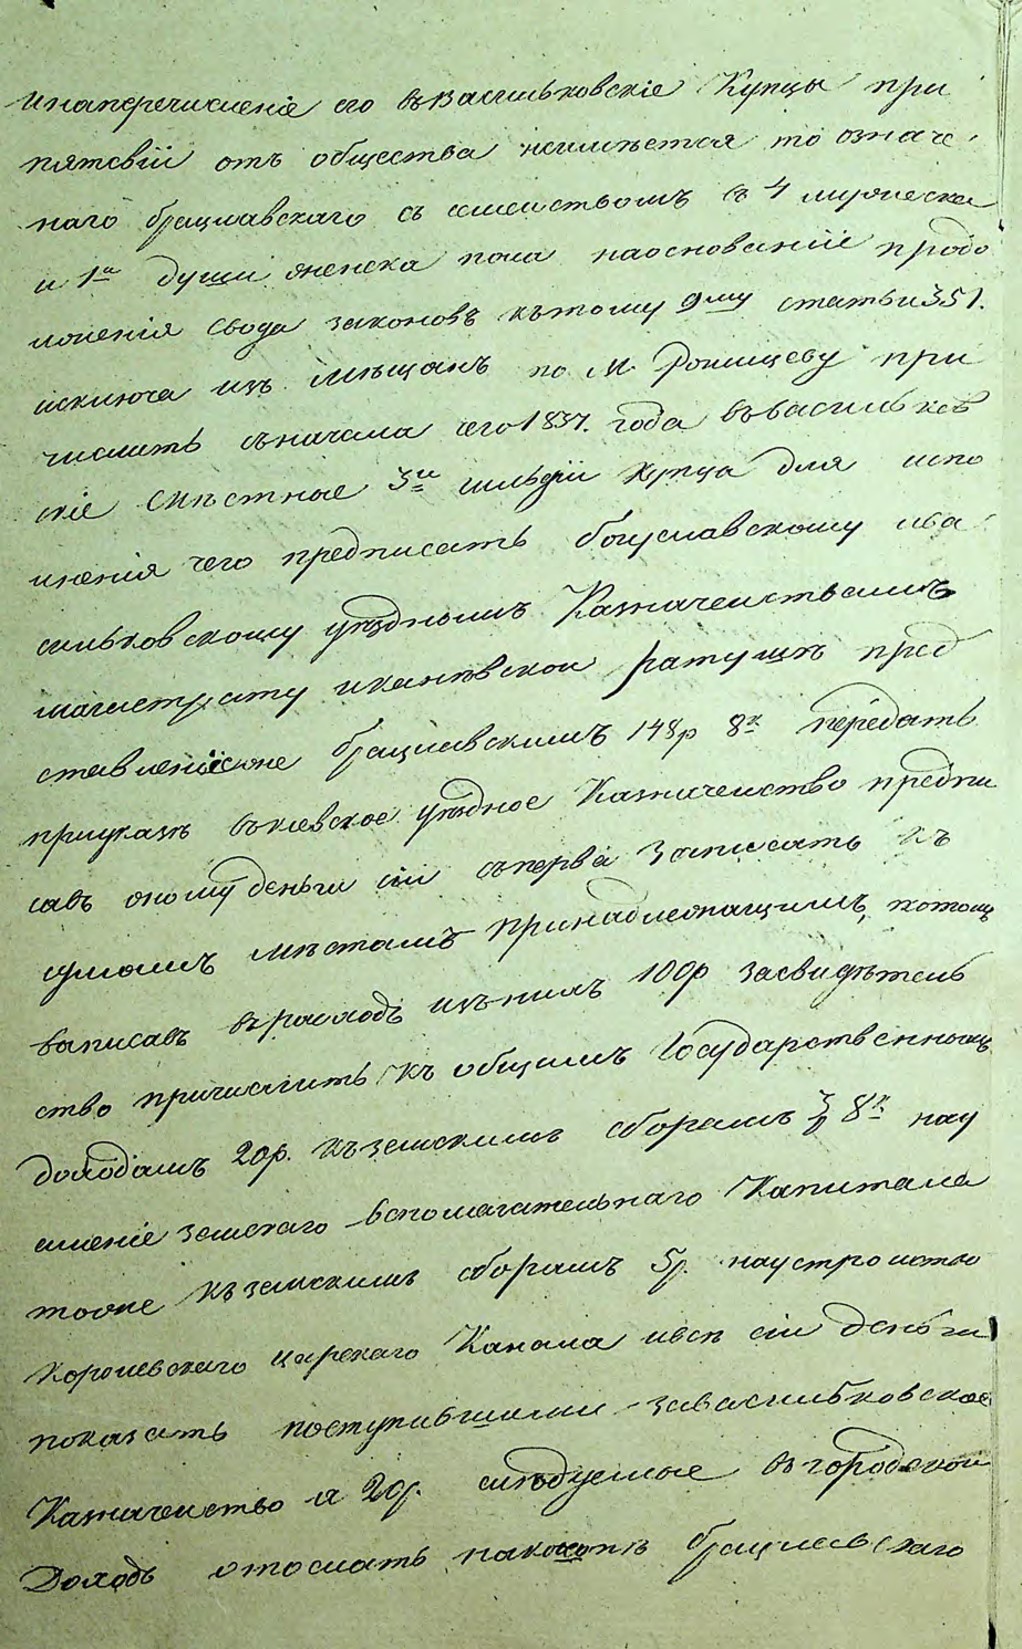 инаперечисленіе его въвасильковскіе Купцы при
пятсвіи отъ общества неимѣется то означе
наго брацлавскаго съ семействомъ въ 4 мужеска
и 1й души женска пола наоснованіи продо
лженія свода законовъ къ тому 9му статьи 351.
исключа изъ мѣщанъ по м. Рокищеву при
числить сначала сего 1837. года въвасильков
скіе смѣстные 3й гильдіи купца для испо
лненія чего предписать богуславскому ива
сильковскому уѣзднымъ Казначействамъ
магистрату иканѣвской ратушѣ пред
ставленные брацлавскимъ 148р 8к передать
приуказѣ вкіевское уѣздное Казначейство предпи
савъ оному деньги сіи сперва записать къ
сумамъ мѣстамъ принадлежащимъ, потомъ
выписавъ врасходъ изънихъ 100р засвидѣтель
ство причислить къ общимъ Государственнымъ
доходамъ 20р. къземскимъ сборамъ 3р 8к нау
силеніе земскаго вспомагательнаго Капитала
тоже къземскимъ сборамъ 5р. наустройство
Королевскаго царскаго Канала ивсѣ сіи деньги
показать поступившими завасильковское
Казначейство а 20р. слѣдуемые вгородской
Доходъ отослать наконетъ брацлавскаго